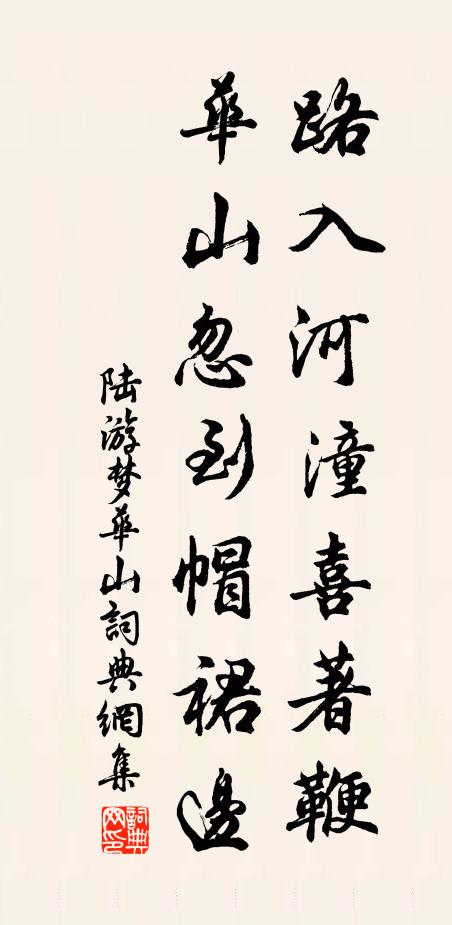 路入河潼喜著鞭
華山忽到帽裙邊
陆游梦華山詞典網集
詞典网印